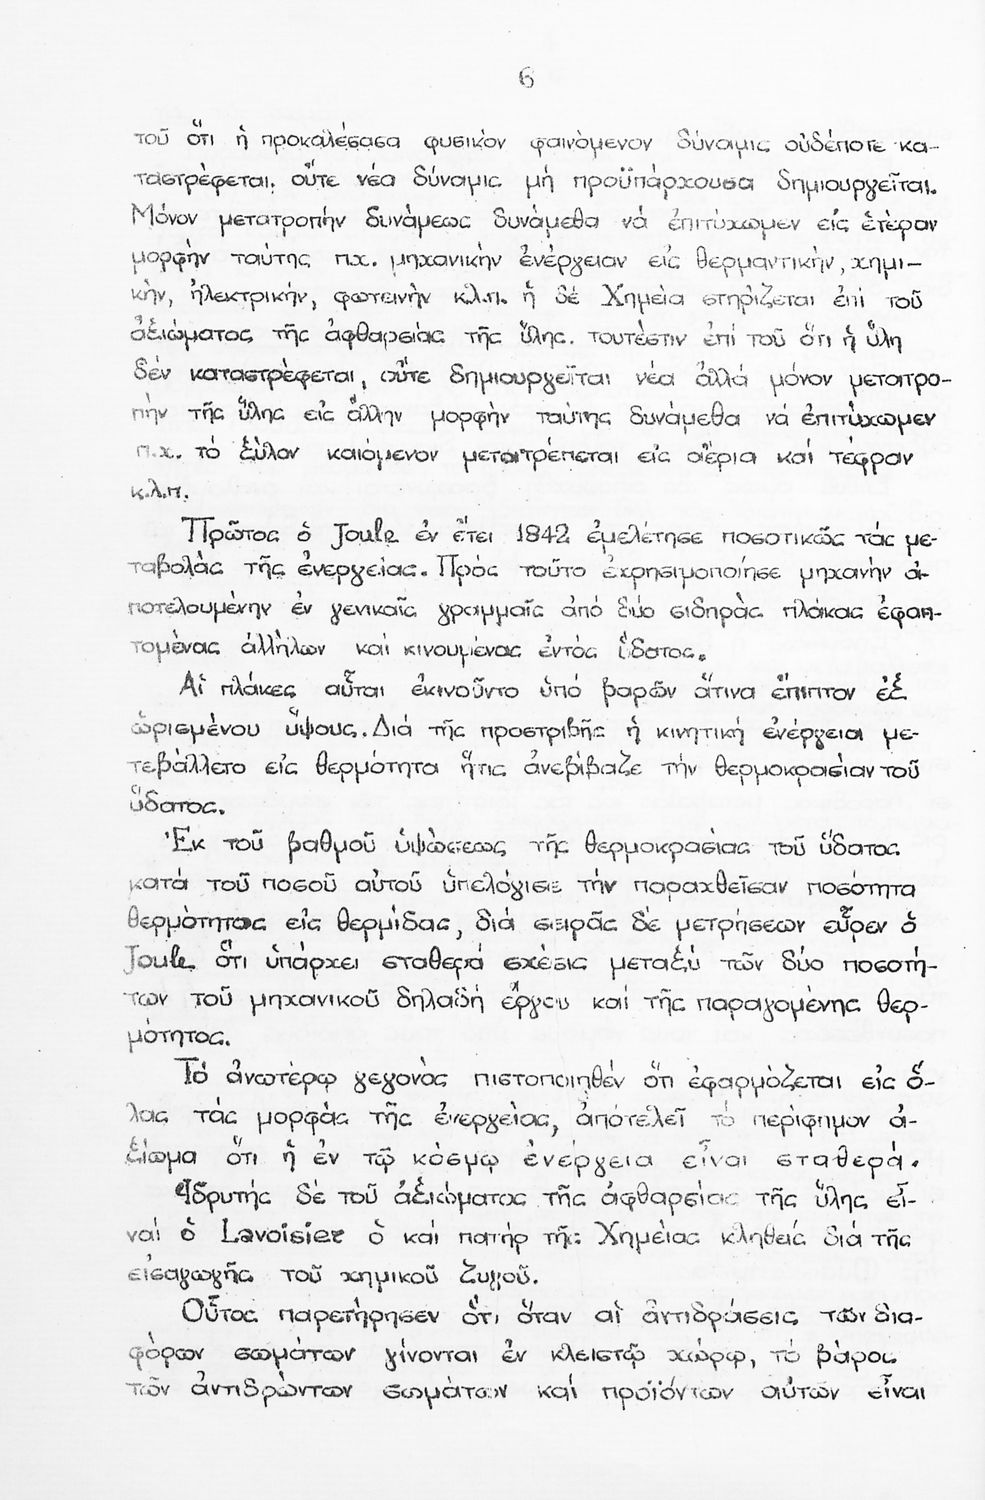 6
τοῦ ὅτι ἡ προκαλέσασα φυσικόν φαινόμενον δύναμις οὐδέποτε κα-
ταστρέφεται. οὔτε νέα δύναμις μή προϋπάρχουσα δημιουργεῖται.
Μόνον μετατροπήν δυνάμεως δυνάμεθα νά ἐπιτύχωμεν εἰς ἑτέραν
μορφήν ταύτης π.χ. μηχανικήν ἐνέργειαν εἰς θερμαντικήν, χημι-
κήν, ἠλεκτρικήν, φωτεινήν κ.λ.π. ἡ δέ Χημεία στηρίζεται ἐπί τοῦ
ἀξιώματος τῆς ἀφθαρσίας τῆς ὕλης. τουτέστιν ἐπί τοῦ ὅτι ἡ ὕλη
δέν καταστρέφεται, οὔτε δημιουργεῖται νέα ἀλλά μόνον μετατρο-
πήν τῆς ὕλης εἰς ἄλλην μορφήν ταύτης δυνάμεθα νά ἐπιτύχωμεν
π.χ. τό ξύλον καιόμενον μετατρέπεται εἰς αἔρια καί τέφραν
κ.λ.π.
Πρῶτος ὁ Joule ἐν ἔτει 1842 ἐμελέτησε ποσοτικῶς τάς με-
ταβολάς τῆς ἐνεργείας. Πρός τοῦτο ἐχρησιμοποίησε μηχανήν ἀ-
ποτελουμένην ἐν γενικαῖς γραμμαῖς ἀπό δύο σιδηρᾶς πλάκας ἐφαπ-
τομένας ἀλλήλων καί κινουμένας ἐντός ὕδατος.
Αἱ πλάκες αὗται ἐκινοῦντο ὑπό βαρῶν ἅτινα ἔπιπτον ἐξ
ὡρισμένου ὕψους. Διά τῆς προστριβῆς ἡ κινητική ἐνέργεια με-
τεβάλλετο εἰς θερμότητα ἥτις ἀνεβίβαζε τήν θερμοκρασίαν τοῦ
ὕδατος.
Ἐκ τοῦ βαθμοῦ ὑψώσεως τῆς θερμοκρασίας τοῦ ὕδατος
κατά τοῦ ποσοῦ αὐτοῦ ὑπελόγισε τήν παραχθεῖσαν ποσότητα
θερμότητος εἰς θερμίδας, διά σειρᾶς δέ μετρήσεων εὗρεν ὁ
Joule ὅτι ὑπάρχει σταθερά σχέσις μεταξύ τῶν δύο ποσοτή-
των τοῦ μηχανικοῦ δηλαδή ἔργου καί τῆς παραγομένης θερ-
μότητος.
Τό ἀνωτέρω γεγονός πιστοποιηθέν ὅτι ἐφαρμόζεται εἰς ὅ-
λας τάς μορφάς τῆς ἐνεργείας, ἀποτελεῖ τό περίφημον ἀ-
ξίωμα ὅτι ἡ ἐν τῷ κόσμῳ ἐνέργεια εἶναι σταθερά.
Ἱδρυτής δέ τοῦ ἀξιώματος τῆς ἀφθαρσίας τῆς ὕλης εἶ-
ναι ὁ Lavoisier ὁ καί πατήρ τῆς Χημείας κληθείς διά τῆς
εἰσαγωγῆς τοῦ χημικοῦ ζυγοῦ.
Οὗτος παρετήρησεν ὅτι ὅταν αἱ ἀντιδράσεις τῶν δια-
φόρων σωμάτων γίνονται ἐν κλειστῷ χώρῳ, τό βάρος
τῶν ἀντιδρώντων σωμάτων καί προϊόντων αὐτῶν εἶναι